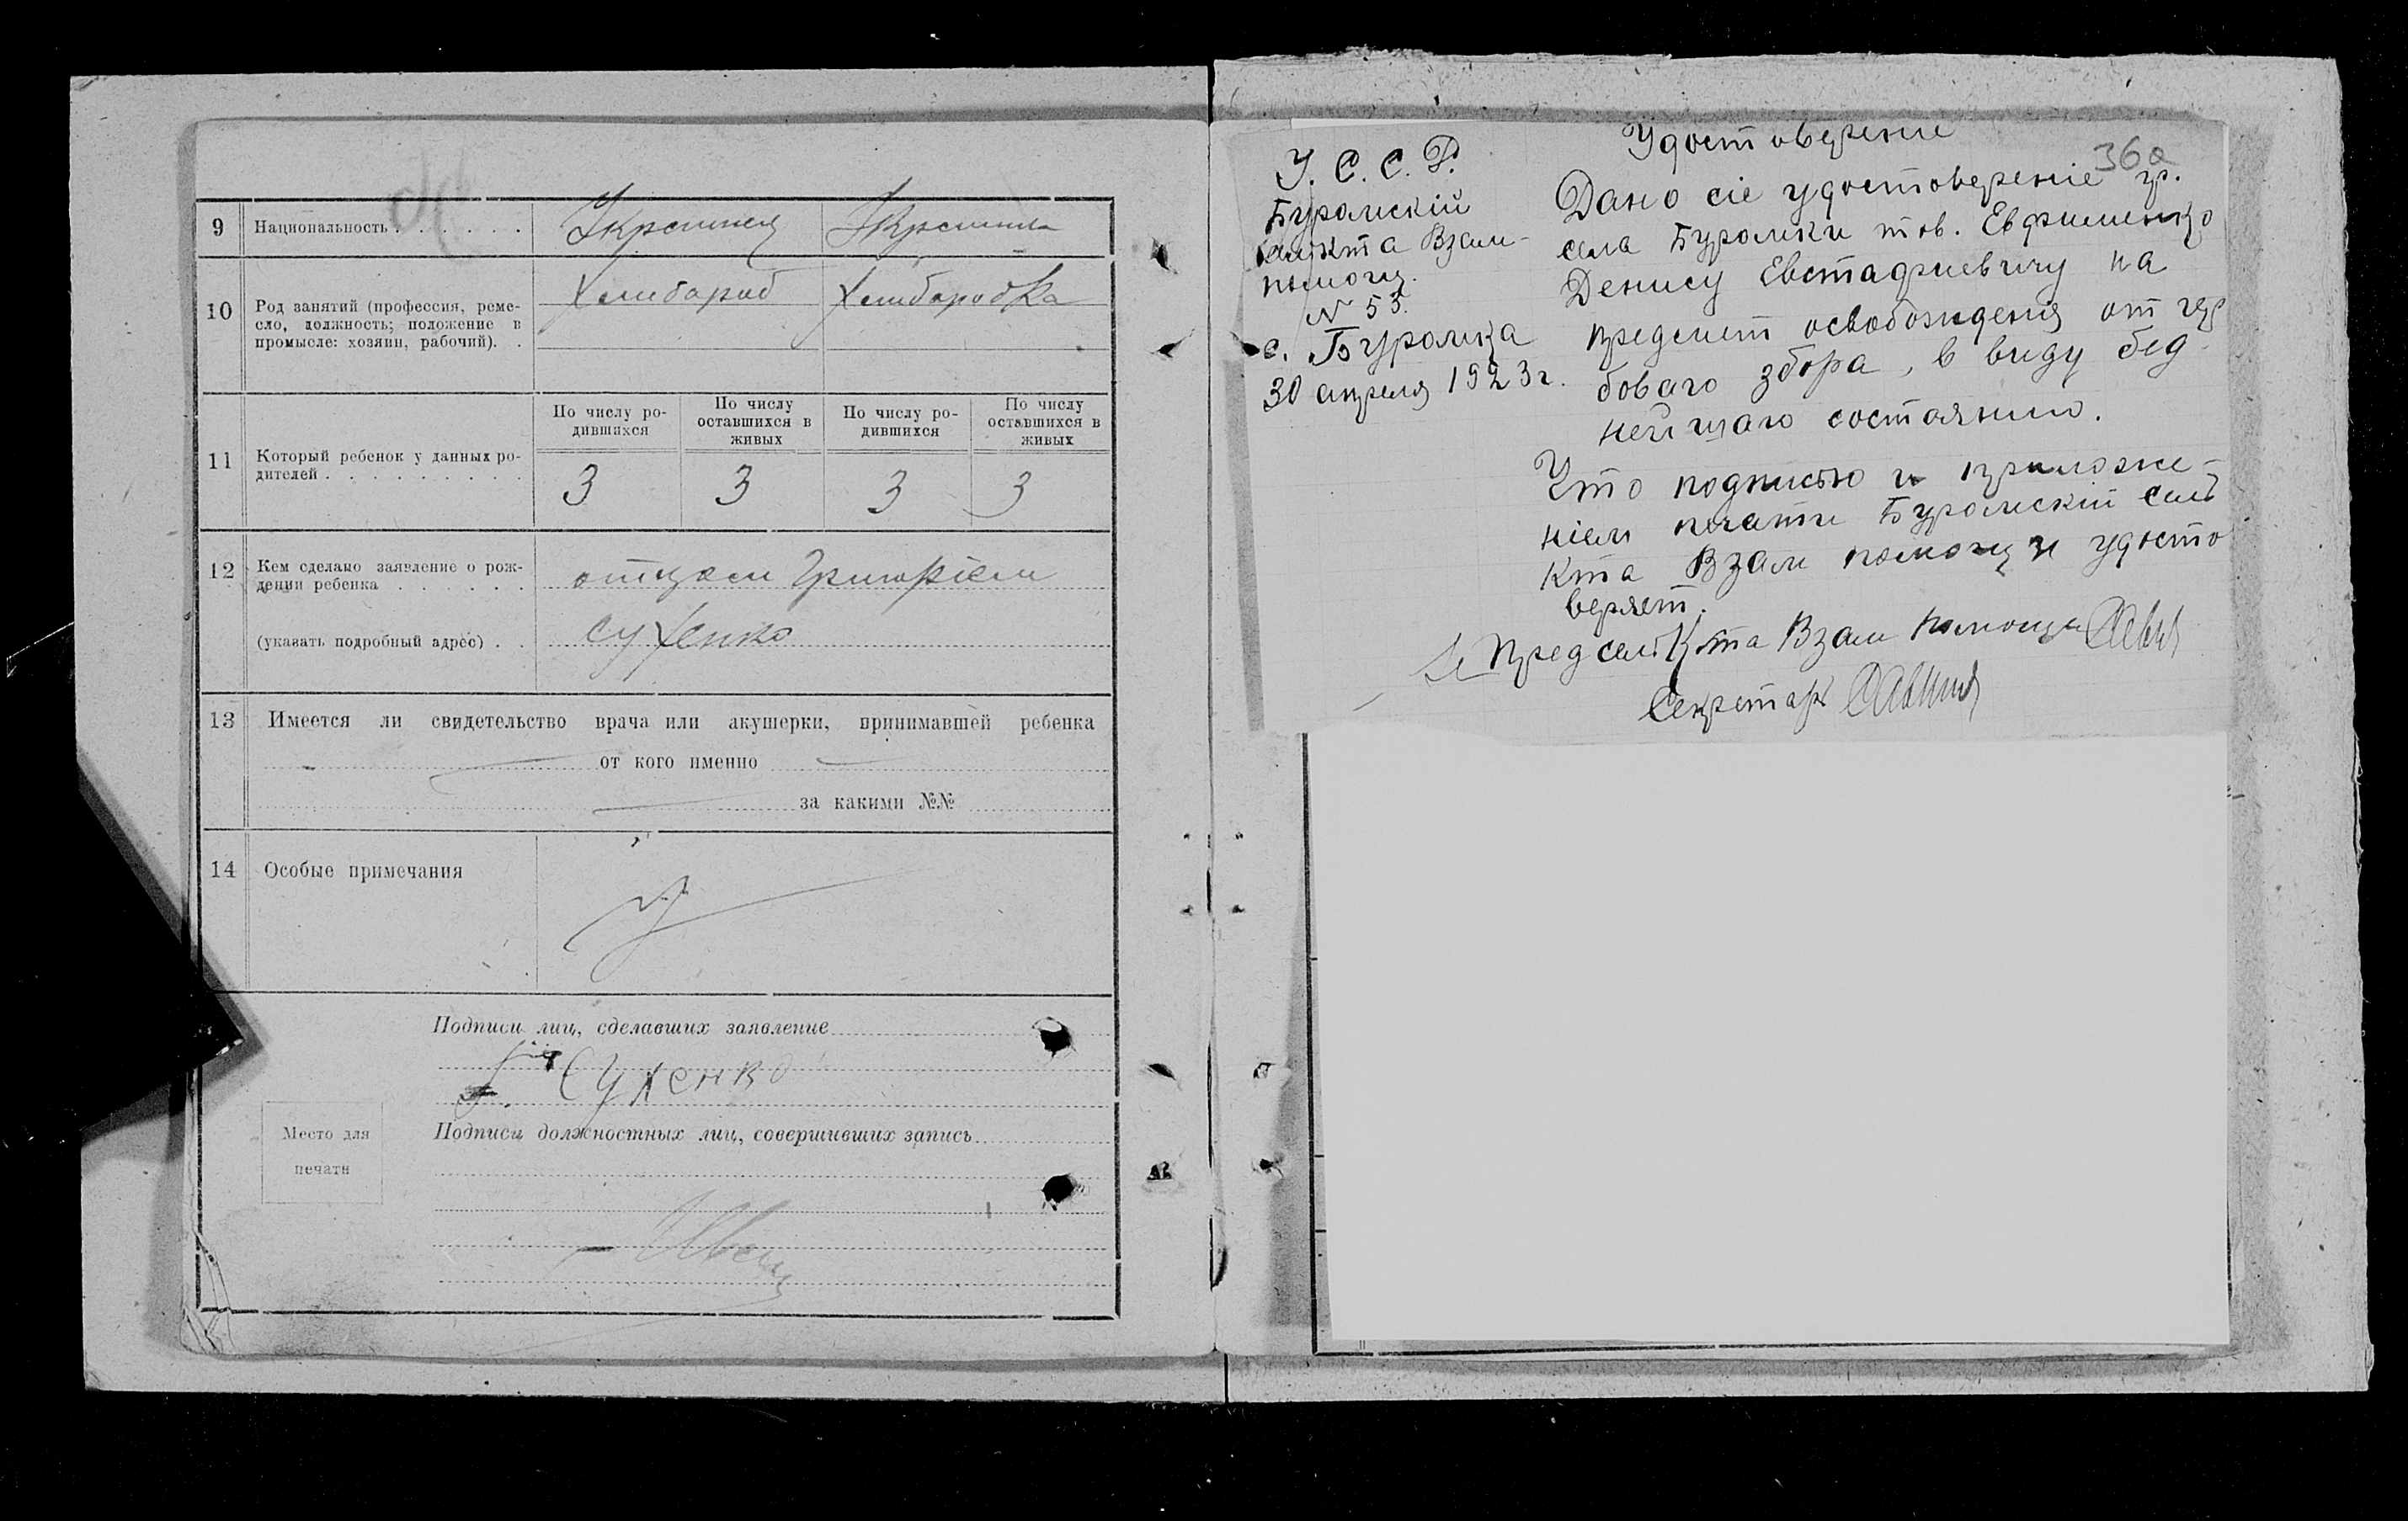 9 Национальность . . . . . . Украинец Украинка
10 Род занятий (профессия, реме-
сло, должность; положение в
промысле: хозяин, рабочий). .
Хлибороб Хлиборобка
11 Который ребенок у данных ро-
дителей . . . . . . . . .
По числу ро-
дившихся
По числу
оставшихся в
живых
По числу ро-
дившихся
По числу
оставшихся в
живых
3 3 3 3
12 Кем сделано заявление о рож-
дении ребенка . . . . . .
отцом Григоріем
(указать подробный адрес) . .
Сухенко
13 Имеется ли свидетельство врача или акушерки, принимавшей ребенка
от кого именно
за какими №№
14 Особые примечания
Подписи лиц, сделавших заявление
Г. Сухенко
Подписи должностных лиц, совершивших запись
Место для
печати
36а
У. С. С. Р.
Буромскій
Взаи-
помощи.
№ 53.
с. Буромка
30 апреля 1923 г.
Удостоверение
Дано сіе удостовереніе гр.
села Буромки тов. Евфименко
Денису Евстафиевичу на
предмет освобождения от гер
боваго збора, в виду бед-
нейшаго состаянию.
Что подписью и приложе-
ніем печати Буромскій Сель
кта Взаим помощи удосто
веряет.
Пред Сель Кта Взаим помощи
Секретарь